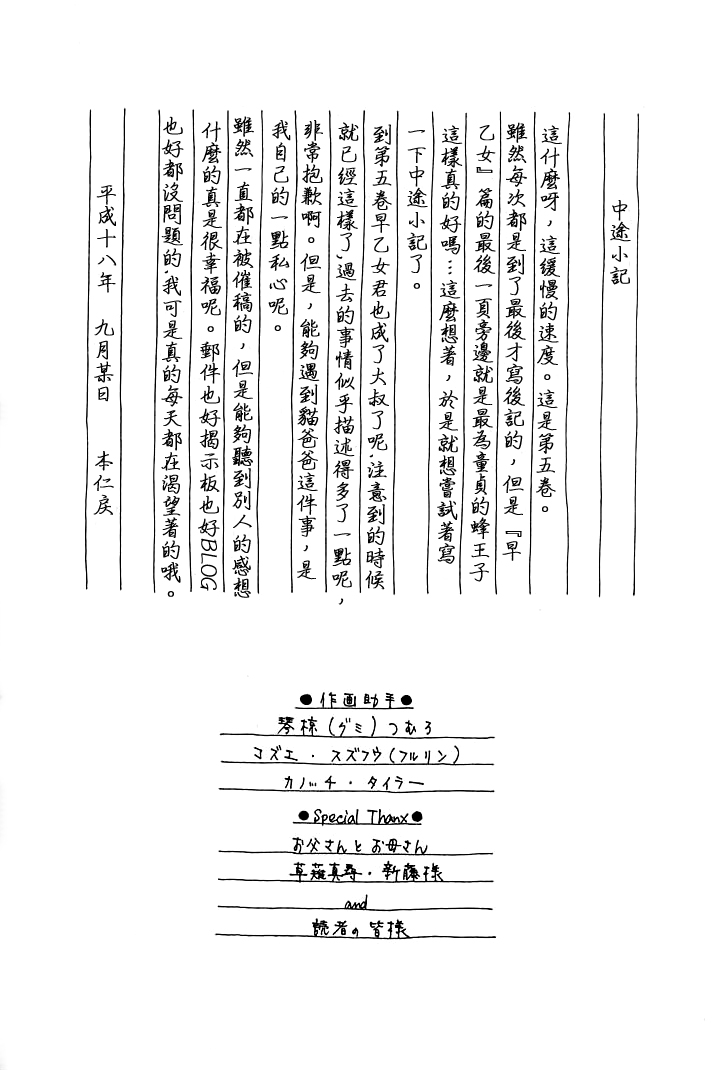 中途小記
這什麼呀，這緩慢的速度。這是第五卷。
雖然每次都是到了最後才寫後記的，但是『早
乙女』篇的最後一頁旁邊就是最為童貞的蜂王子
這樣真的好嗎…這麼想著，於是就想嘗試著寫
一下中途小記了。
到第五卷早乙女君也成了大叔了呢，注意到的時候
就已經這樣了，過去的事情似乎描述得多了一點呢，
非常抱歉啊。但是，能夠遇到貓爸爸這件事，是
我自己的一點私心呢。
雖然一直都在被催稿的，但是能夠聽到別人的感想
什麼的真是很幸福呢。郵件也好揭示板也好BLOG
也好都沒問題的，我可是真的每天都在渴望著的哦。
平成十八年 九月某日 本仁戻
●作画助手●
琴椋（グミ）つむろ
コズエ・スズフウ（フルリン）
カノッチ・タイラー
●Special Thanx●
お父さんとお母さん
草薙真尋・新藤様
and
読者の皆様